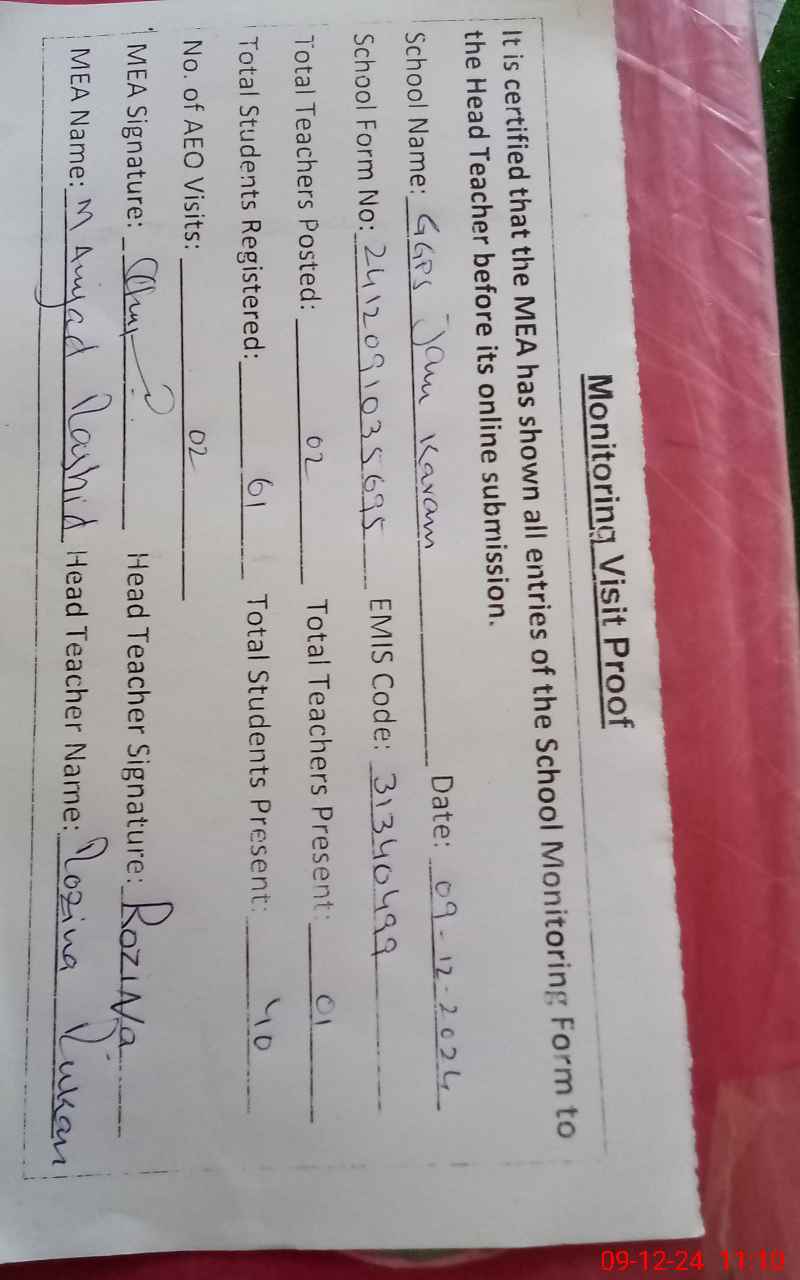 Monitoring Visit Proof
It is certified that the MEA has shown all entries of the School Monitoring Form to
the Head Teacher before its online submission.
School Name: GGPS Jam Karam Date: 09-12-2024
School Form No: 2412091035695 EMIS Code: 31340499
Total Teachers Posted: 02 Total Teachers Present: 01
Total Students Registered: 61 Total Students Present: 40
No. of AEO Visits: 02
MEA Signature: Head Teacher Signature: Rozina
MEA Name: M Amjad Rashid Head Teacher Name: Rozina
09-12-24 11:10